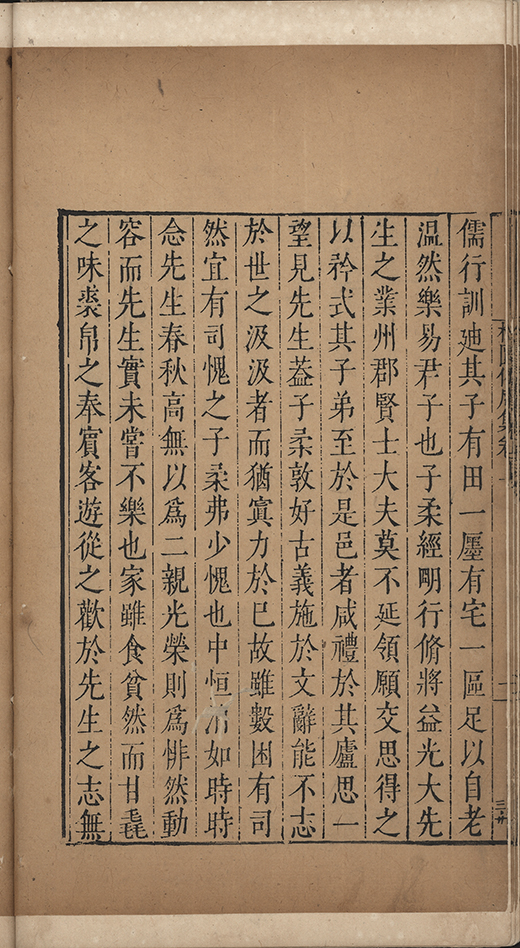 儒行訓廸其子有田一廛有宅一區足以自老
温然樂易君子也子柔經明行脩將益光大先
生之業州郡賢士大夫莫不延領願交思得之
以矜式其子弟至於是邑者咸禮於其廬思一
望見先生葢子柔敦好古義施於文辭能不志
於世之汲汲者而猶寘力於已故雖數困有司
然宜有司愧之子柔弗少愧也中恒如時時
念先生春秋高無以爲二親光榮則爲悱然動
容而先生實未嘗不樂也家雖食貧然而甘毳
之味裘帛之奉賔客遊從之歡於先生之志無